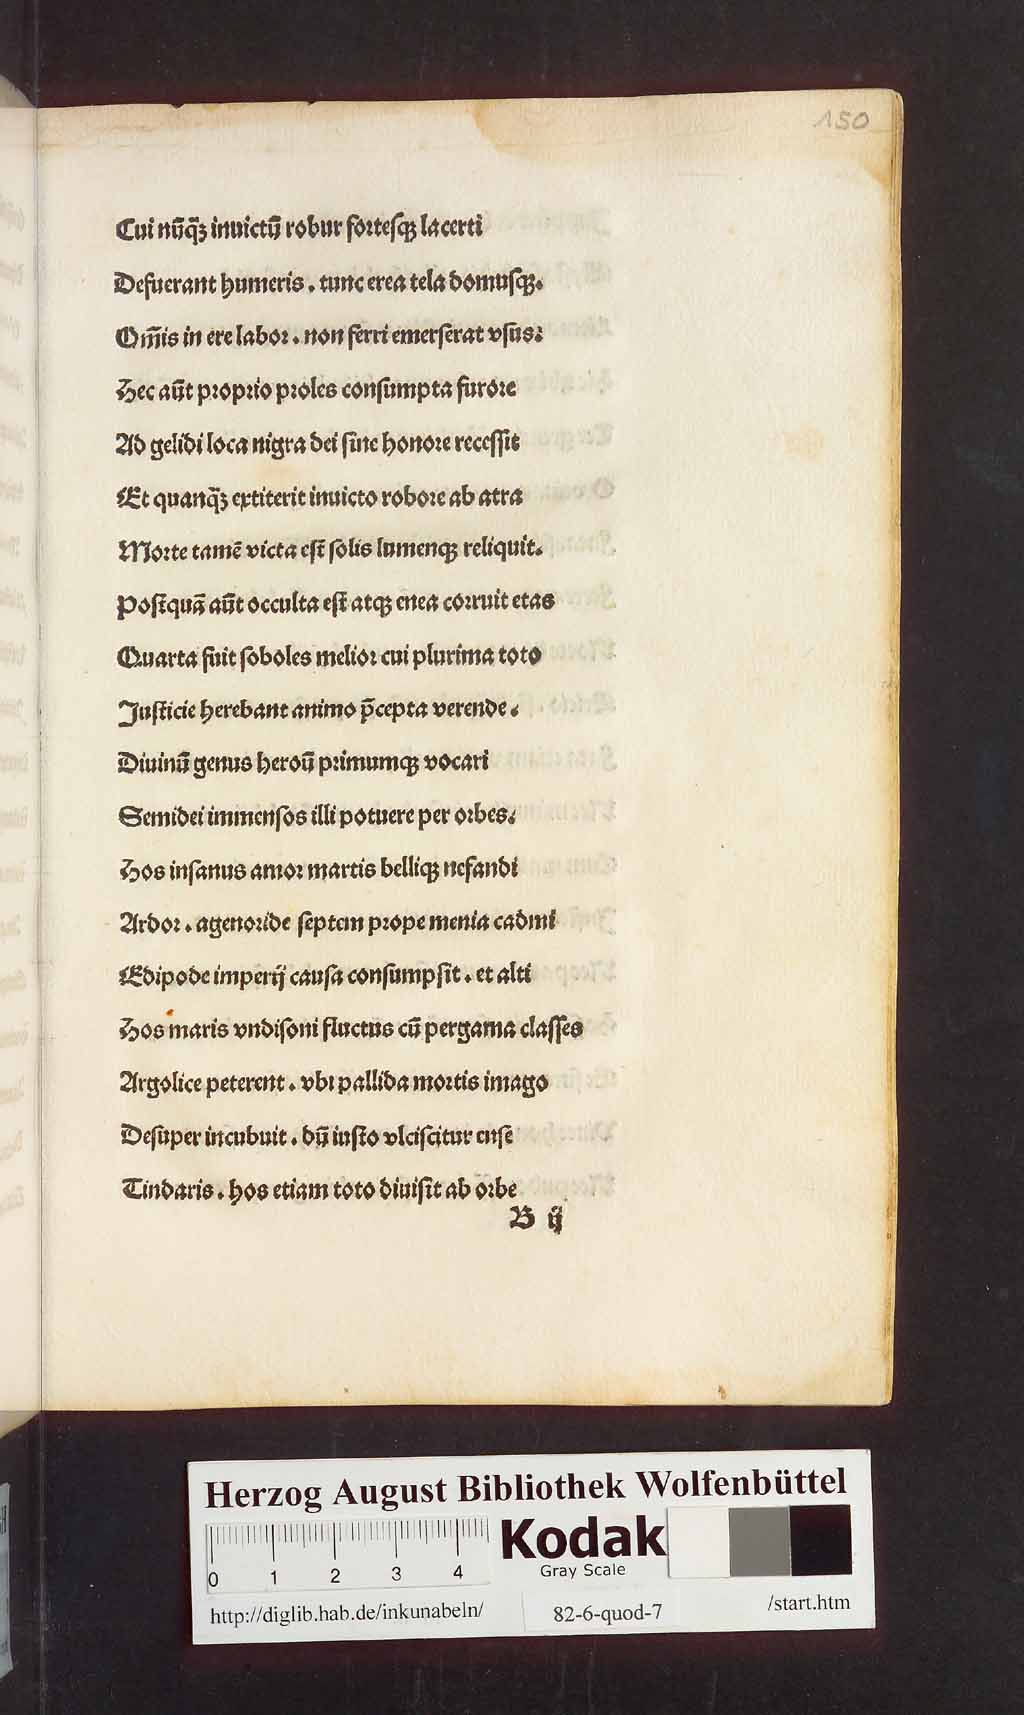 150
Cui nūq̄ꝫ inuictū robur forteſqꝫ lacerti
Defuerant humeris . tunc erea tela domuſqꝫ.
Om̄is in ere labor . non ferri emerſerat vſus:
Hec aūt proprio proles conſumpta furore
Ad gelidi loca nigra dei ſine honore receſſit
Et quanq̄ꝫ extiterit inuicto robore ab atra
Morte tamē victa eſt ſolis lumenqꝫ reliquit.
Poſtquā aūt occulta eſt atqꝫ enea corruit etas
Quarta fuit ſoboles melior cui plurima toto
Juſticie herebant animo p̄cepta verende.
Diuinū genus heroū primumqꝫ vocari
Semidei immenſos illi potuere per orbes.
Hos inſanus amor martis belliqꝫ nefandi
Ardor . agenoride ſeptem prope menia cadmi
Edipode imperij cauſa conſumpſit . et alti
Hos maris vndiſoni fluctus cū pergama claſſes
Argolice peterent . vbi pallida mortis imago
Deſuper incubuit . dū iuſto vlciſcitur enſe
Tindaris . hos etiam toto diuiſit ab orbe
B ij
Herzog August Bibliothek Wolfenbüttel
0 1 2 3 4
Kodak
Gray Scale
http://diglib.hab.de/inkunabeln/ 82-6-quod-7 /start.htm